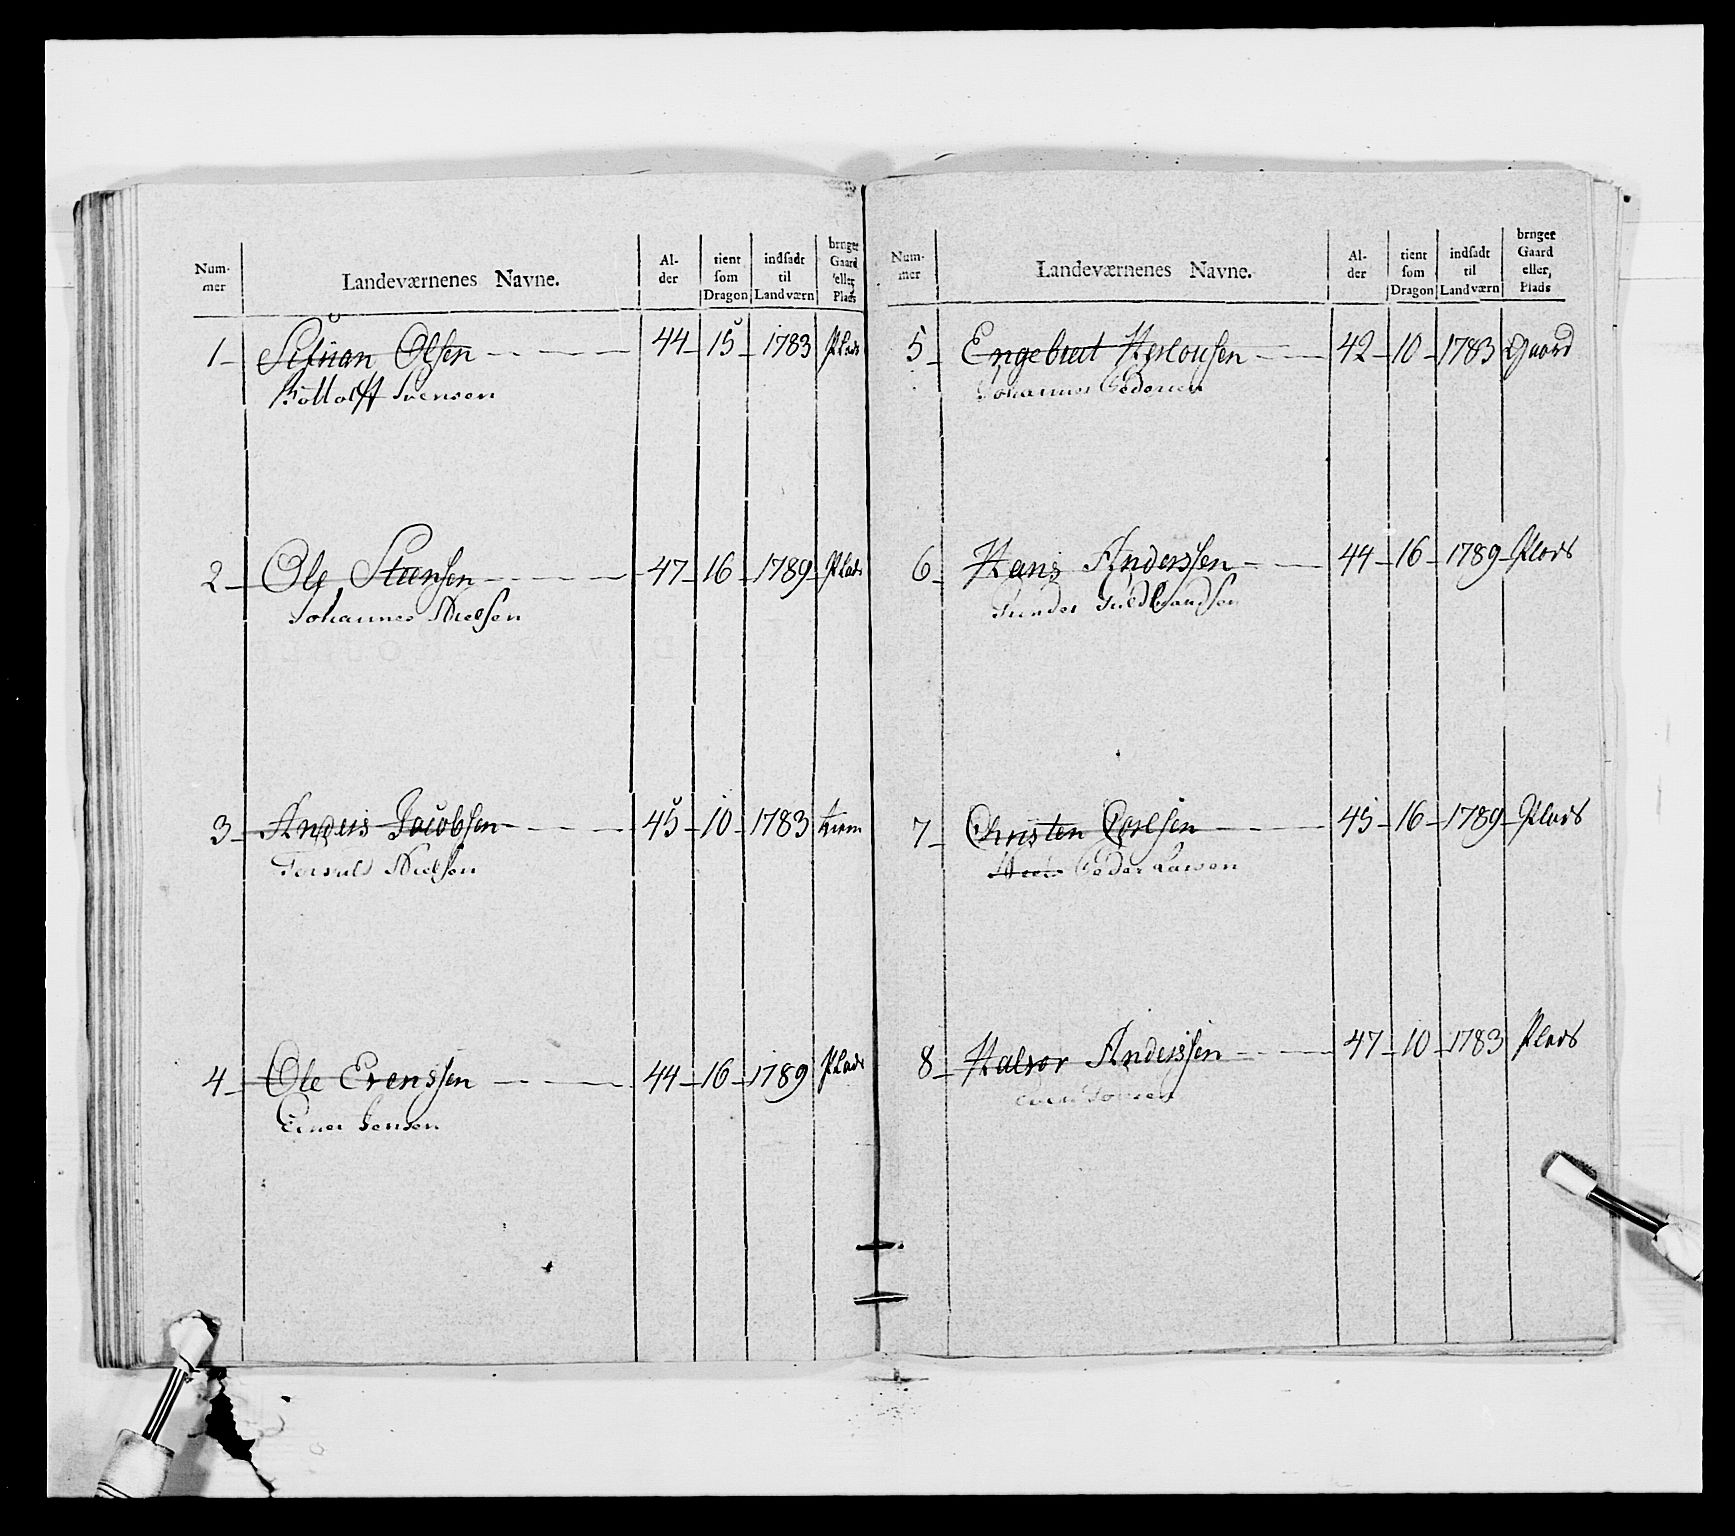 Num-
mer
Landeværnenes Navne.
Al-
der
tient
som
Dragon
indsadt
til
Landværn
bruger
Gaard
eller
Plads
1 Olsen 44 15 1783 Plads
Svensen
2 Ole Steensen 47 16 1789 Plads
Johannes Nielsen
3 Anders Jacobsen 45 10 1783
Nielsen
4 Ole Evenssen 44 16 1789 Plads
Einer Jensen
Num-
mer
Landeværnenes Navne.
Al-
der
tient
som
Dragon
indsadt
til
Landværn
bruger
Gaard
eller,
Plads
5 Engebret 42 10 1783 Gaard
Johannes Pedersen
6 Hans Anderssen 44 16 1789 Plads
Guldbrandsen
7 Christen 45 16 1789 Plads
Peder Larsen
8 Halvor Anderssen 47 10 1783 Plads